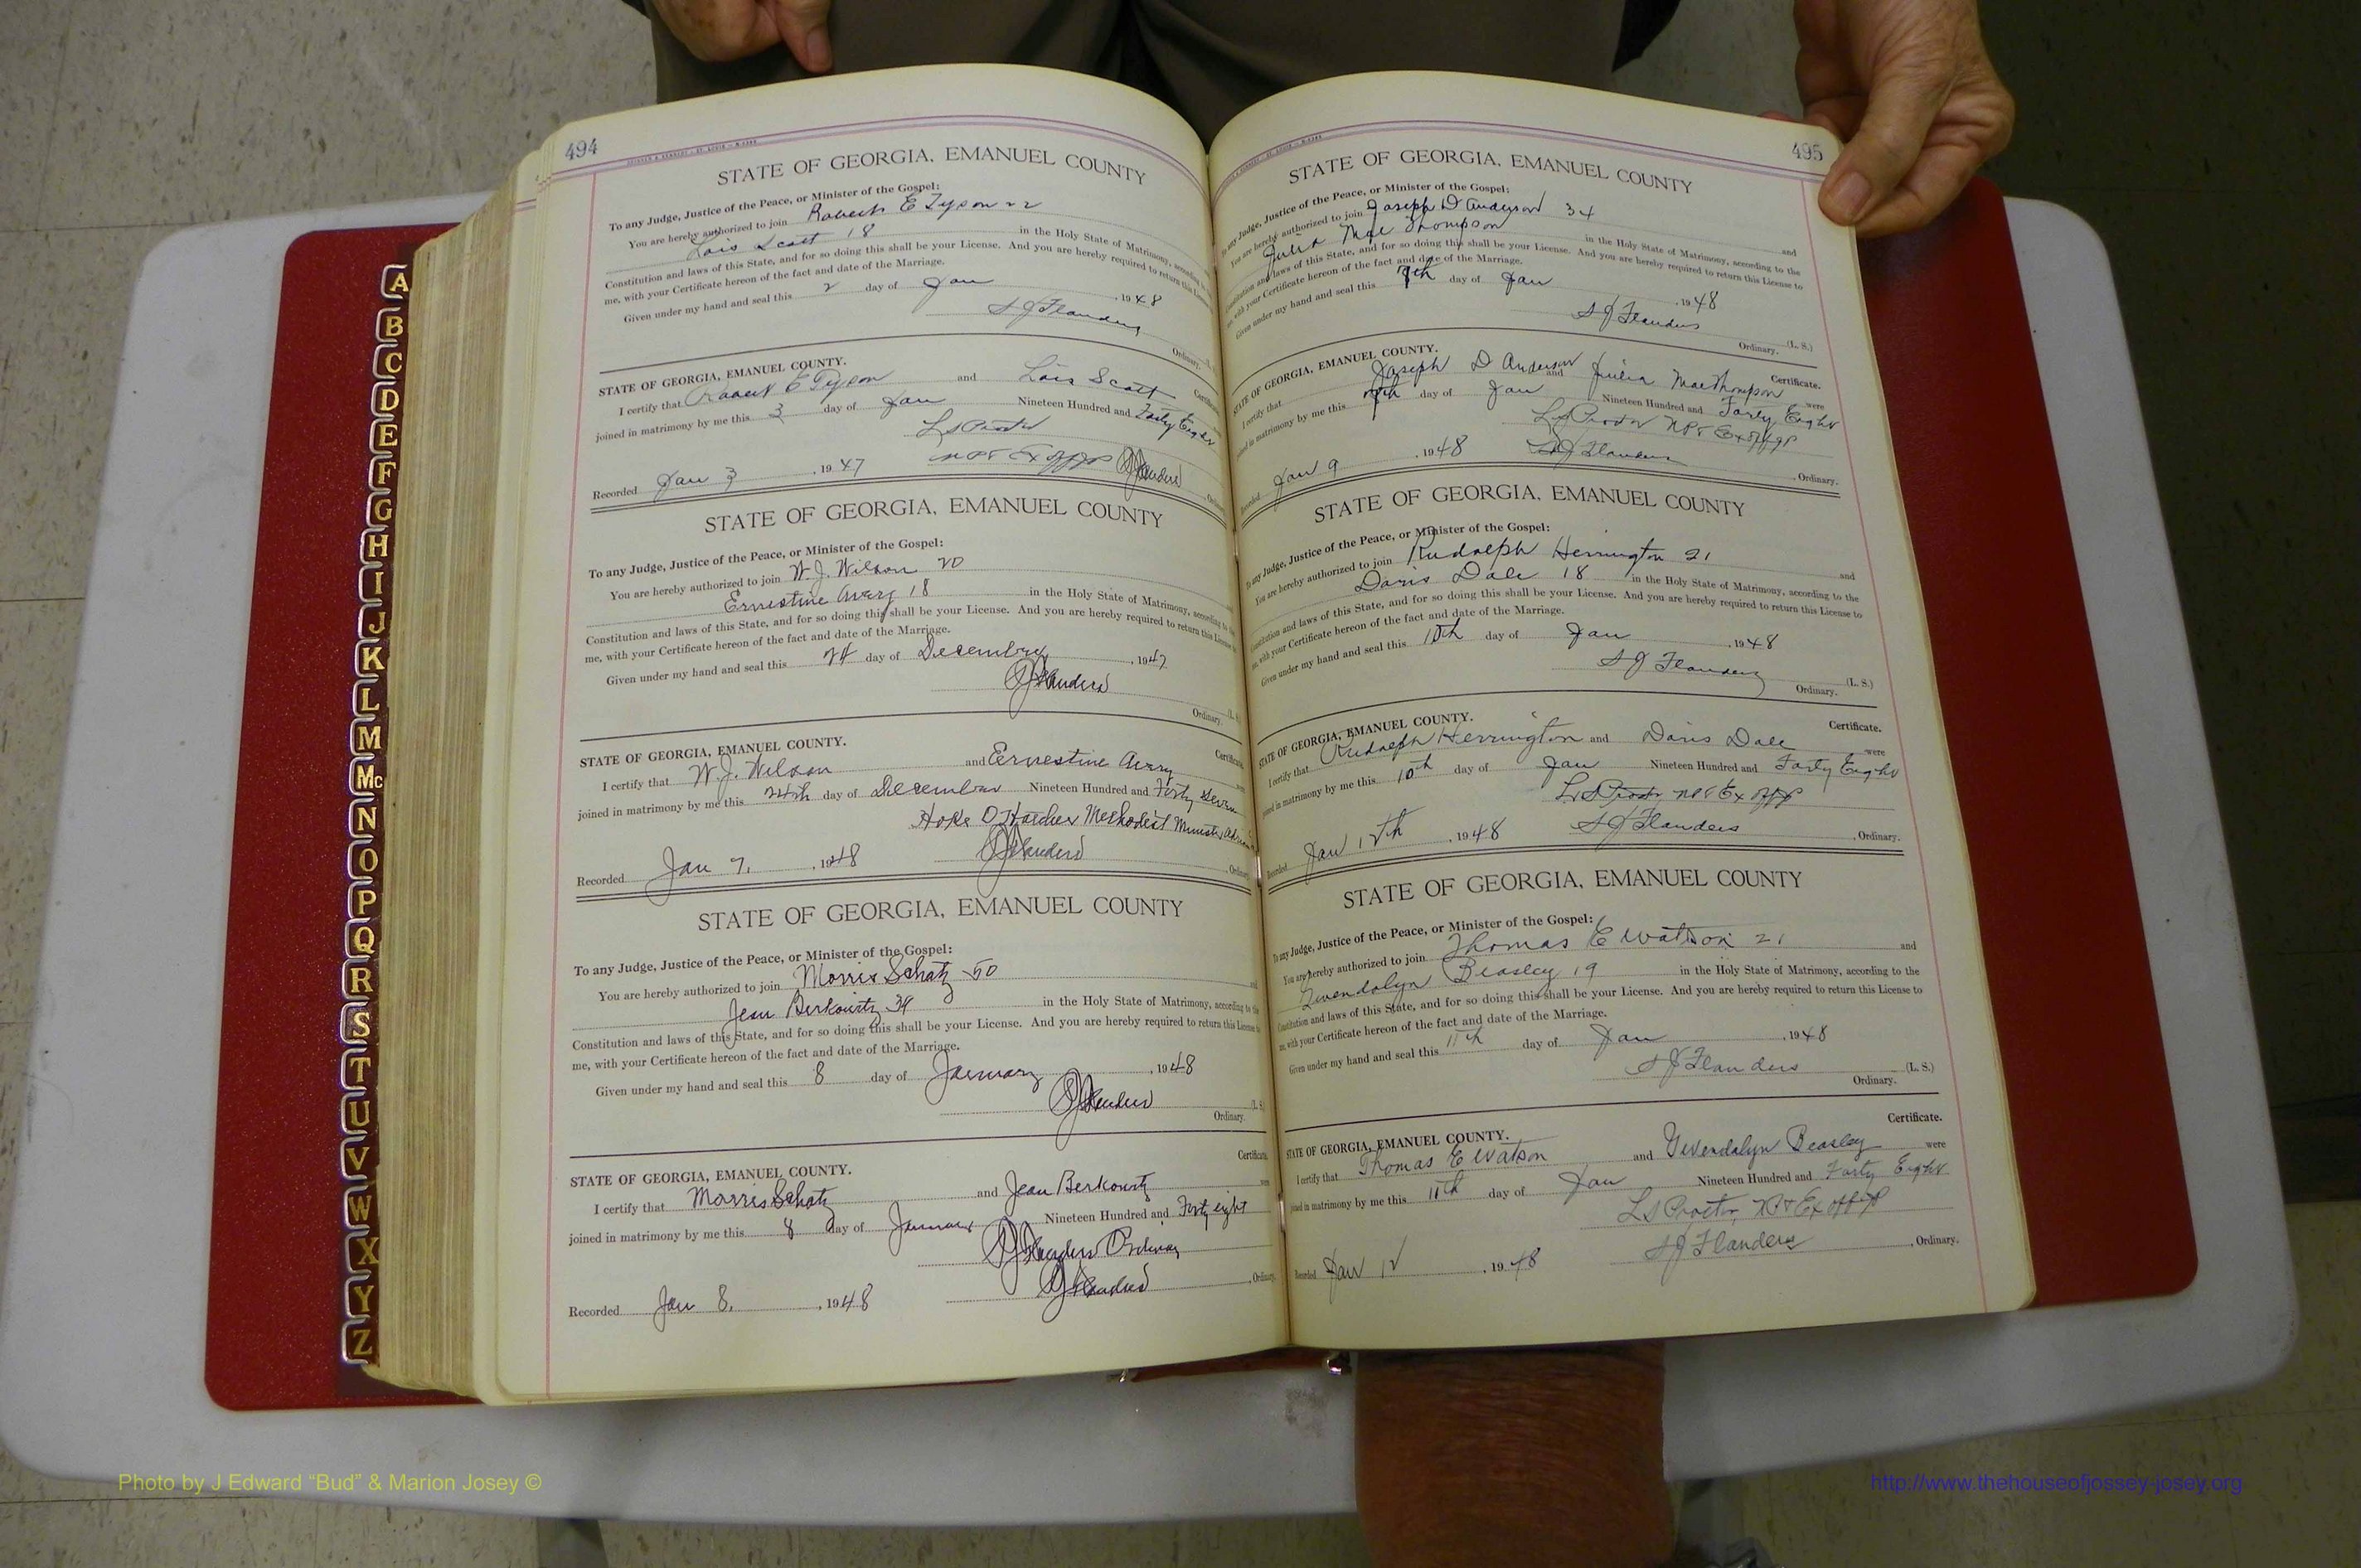 494
STATE OF GEORGIA, EMANUEL COUNTY
To any Judge, Justice of the Peace, or Minister of the Gospel:
You are hereby authorized to join Robert E Tyson 22
Lois Scott 18 in the Holy State of Matrimony, according to the
Constitution and laws of this State, and for so doing this shall be your License. And you are hereby required to return this License
me, with your Certificate hereon of the fact and date of the Marriage.
Given under my hand and seal this 2 day of Jan , 1948
S J Flanders
Ordinary.
STATE OF GEORGIA, EMANUEL COUNTY.
I certify that Robert E Tyson and Lois Scott
joined in matrimony by me this 3 day of Jan Nineteen Hundred and Forty Eight
L S Proctor
Recorded Jan 3 , 1947 NP & Ex off JP
STATE OF GEORGIA, EMANUEL COUNTY
To any Judge, Justice of the Peace, or Minister of the Gospel:
You are hereby authorized to join W. J. Wilson 20
Ernestine Avery 18 in the Holy State of Matrimony, according to the
Constitution and laws of this State, and for so doing this shall be your License. And you are hereby required to return this License
me, with your Certificate hereon of the fact and date of the Marriage.
Given under my hand and seal this 24 day of December , 1947
SJ Flanders (L. S.
Ordinary.
STATE OF GEORGIA, EMANUEL COUNTY. Certificate.
I certify that W. J. Wilson and Ernestine Avery
joined in matrimony by me this 24th day of December Nineteen Hundred and Forty Seven
Methodist Minister
SJ Flanders
Recorded Jan 7, , 1948
STATE OF GEORGIA, EMANUEL COUNTY
To any Judge, Justice of the Peace, or Minister of the Gospel:
You are hereby authorized to join Morris Schatz 50
Jean Berkowitz 34 in the Holy State of Matrimony, according to the
Constitution and laws of this State, and for so doing this shall be your License. And you are hereby required to return this License
me, with your Certificate hereon of the fact and date of the Marriage.
Given under my hand and seal this 8 day of January , 1948
SJ Flanders (L. S.
Ordinary.
Certificate.
STATE OF GEORGIA, EMANUEL COUNTY.
I certify that Morris Schatz and Jean Berkowitz
joined in matrimony by me this 8 day of January Nineteen Hundred and Forty eight
SJ Flanders Ordinary
Recorded Jan 8, , 1948 SJ Flanders , Ordinary.
495
STATE OF GEORGIA, EMANUEL COUNTY
To any Judge, Justice of the Peace, or Minister of the Gospel:
You are hereby authorized to join Joseph D Anderson 34 and
Julia Mae Thompson in the Holy State of Matrimony, according to the
Constitution and laws of this State, and for so doing this shall be your License. And you are hereby required to return this License to
me, with your Certificate hereon of the fact and date of the Marriage.
Given under my hand and seal this day of Jan , 1948
S J Flanders (L. S.)
Ordinary.
STATE OF GEORGIA, EMANUEL COUNTY. Certificate.
I certify that Joseph D Anderson and Julia Mae Thompson were
joined in matrimony by me this day of Jan Nineteen Hundred and Forty Eight
L S Proctor NP & Ex off JP
Recorded Jan 9 , 1948 S J Flanders , Ordinary.
STATE OF GEORGIA, EMANUEL COUNTY
To any Judge, Justice of the Peace, or Minister of the Gospel:
You are hereby authorized to join Rudolph Herrington 21 and
Doris Dale 18 in the Holy State of Matrimony, according to the
Constitution and laws of this State, and for so doing this shall be your License. And you are hereby required to return this License to
me, with your Certificate hereon of the fact and date of the Marriage.
Given under my hand and seal this 10th day of Jan , 1948
S J Flanders (L. S.)
Ordinary.
STATE OF GEORGIA, EMANUEL COUNTY. Certificate.
I certify that Rudolph Herrington and Doris Dale were
joined in matrimony by me this 10th day of Jan Nineteen Hundred and Forty Eight
L S Proctor NP & Ex off JP
Recorded Jan 12th , 1948 S J Flanders , Ordinary.
STATE OF GEORGIA, EMANUEL COUNTY
To any Judge, Justice of the Peace, or Minister of the Gospel:
You are hereby authorized to join Thomas E Watson 21 and
Gwendalyn Beasley 19 in the Holy State of Matrimony, according to the
Constitution and laws of this State, and for so doing this shall be your License. And you are hereby required to return this License to
me, with your Certificate hereon of the fact and date of the Marriage.
Given under my hand and seal this 11th day of Jan , 1948
S J Flanders (L. S.)
Ordinary.
Certificate.
STATE OF GEORGIA, EMANUEL COUNTY.
I certify that Thomas E Watson and Gwendalyn Beasley were
joined in matrimony by me this 11th day of Jan Nineteen Hundred and Forty Eight
L S Proctor, NP & Ex off JP
Recorded Jan 12 , 1948 S J Flanders , Ordinary.
A
B
C
D
E
F
G
H
I
J
K
L
M
Mc
N
O
P
Q
R
S
T
U
V
W
X
Y
Z
Photo by J Edward “Bud” & Marion Josey ©
http://www.thehouseofjossey-josey.org